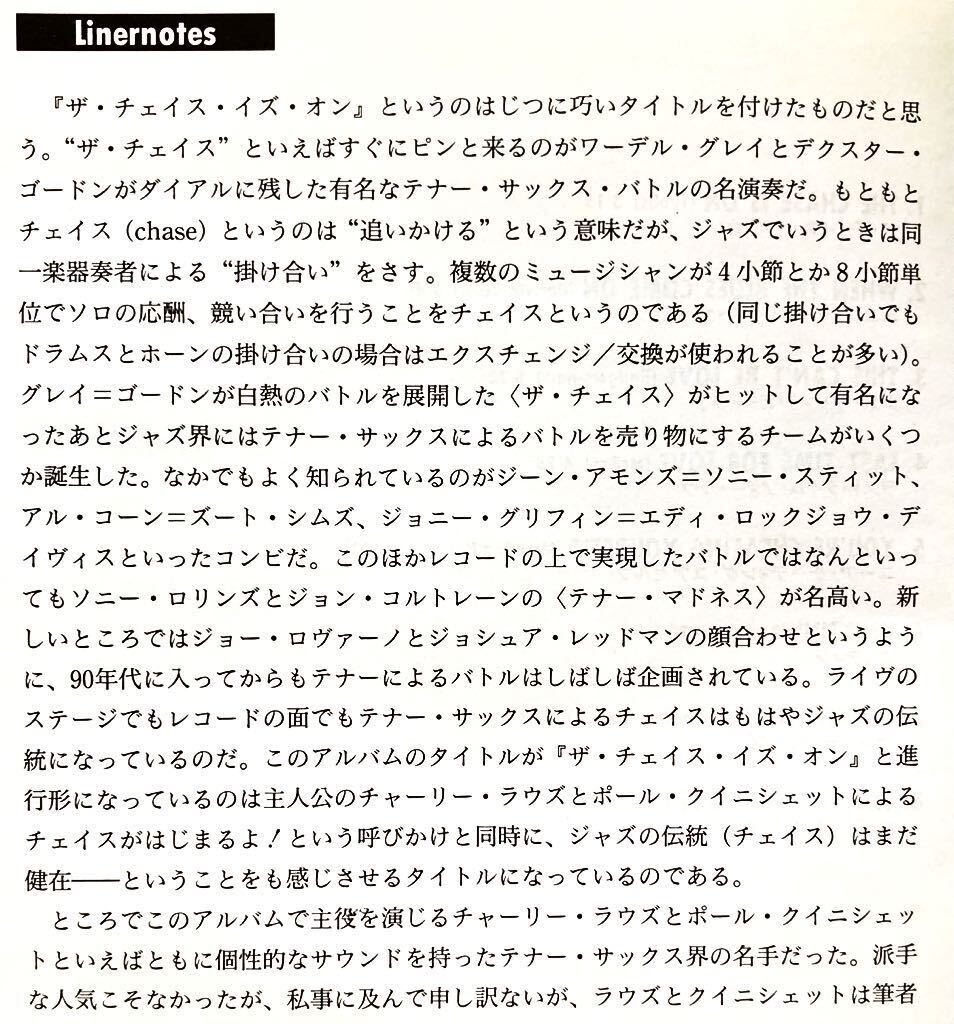 Linernotes
『ザ・チェイス・イズ・オン』というのはじつに巧いタイトルを付けたものだと思
う。“ザ・チェイス” といえばすぐにピンと来るのがワーデル・グレイとデクスター・
ゴードンがダイアルに残した有名なテナー・サックス・バトルの名演奏だ。もともと
チェイス（chase）というのは “追いかける” という意味だが、ジャズでいうときは同
一楽器奏者による “掛け合い” をさす。複数のミュージシャンが4小節とか8小節単
位でソロの応酬、競い合いを行うことをチェイスというのである（同じ掛け合いでも
ドラムスとホーンの掛け合いの場合はエクスチェンジ／交換が使われることが多い）。
グレイ＝ゴードンが白熱のバトルを展開した〈ザ・チェイス〉がヒットして有名にな
ったあとジャズ界にはテナー・サックスによるバトルを売り物にするチームがいくつ
か誕生した。なかでもよく知られているのがジーン・アモンズ＝ソニー・スティット、
アル・コーン＝ズート・シムズ、ジョニー・グリフィン＝エディ・ロックジョウ・デ
イヴィスといったコンビだ。このほかレコードの上で実現したバトルではなんといっ
てもソニー・ロリンズとジョン・コルトレーンの〈テナー・マドネス〉が名高い。新
しいところではジョー・ロヴァーノとジョシュア・レッドマンの顔合わせというよう
に、90年代に入ってからもテナーによるバトルはしばしば企画されている。ライヴの
ステージでもレコードの面でもテナー・サックスによるチェイスはもはやジャズの伝
統になっているのだ。このアルバムのタイトルが『ザ・チェイス・イズ・オン』と進
行形になっているのは主人公のチャーリー・ラウズとポール・クイニシェットによる
チェイスがはじまるよ！という呼びかけと同時に、ジャズの伝統（チェイス）はまだ
健在――ということをも感じさせるタイトルになっているのである。
ところでこのアルバムで主役を演じるチャーリー・ラウズとポール・クイニシェッ
トといえばともに個性的なサウンドを持ったテナー・サックス界の名手だった。派手
な人気こそなかったが、私事に及んで申し訳ないが、ラウズとクイニシェットは筆者